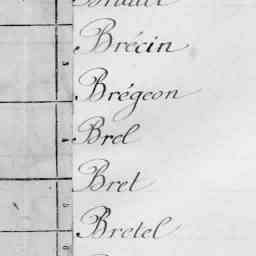 Brécin
Brégeon
Brel
Bret
Bretel